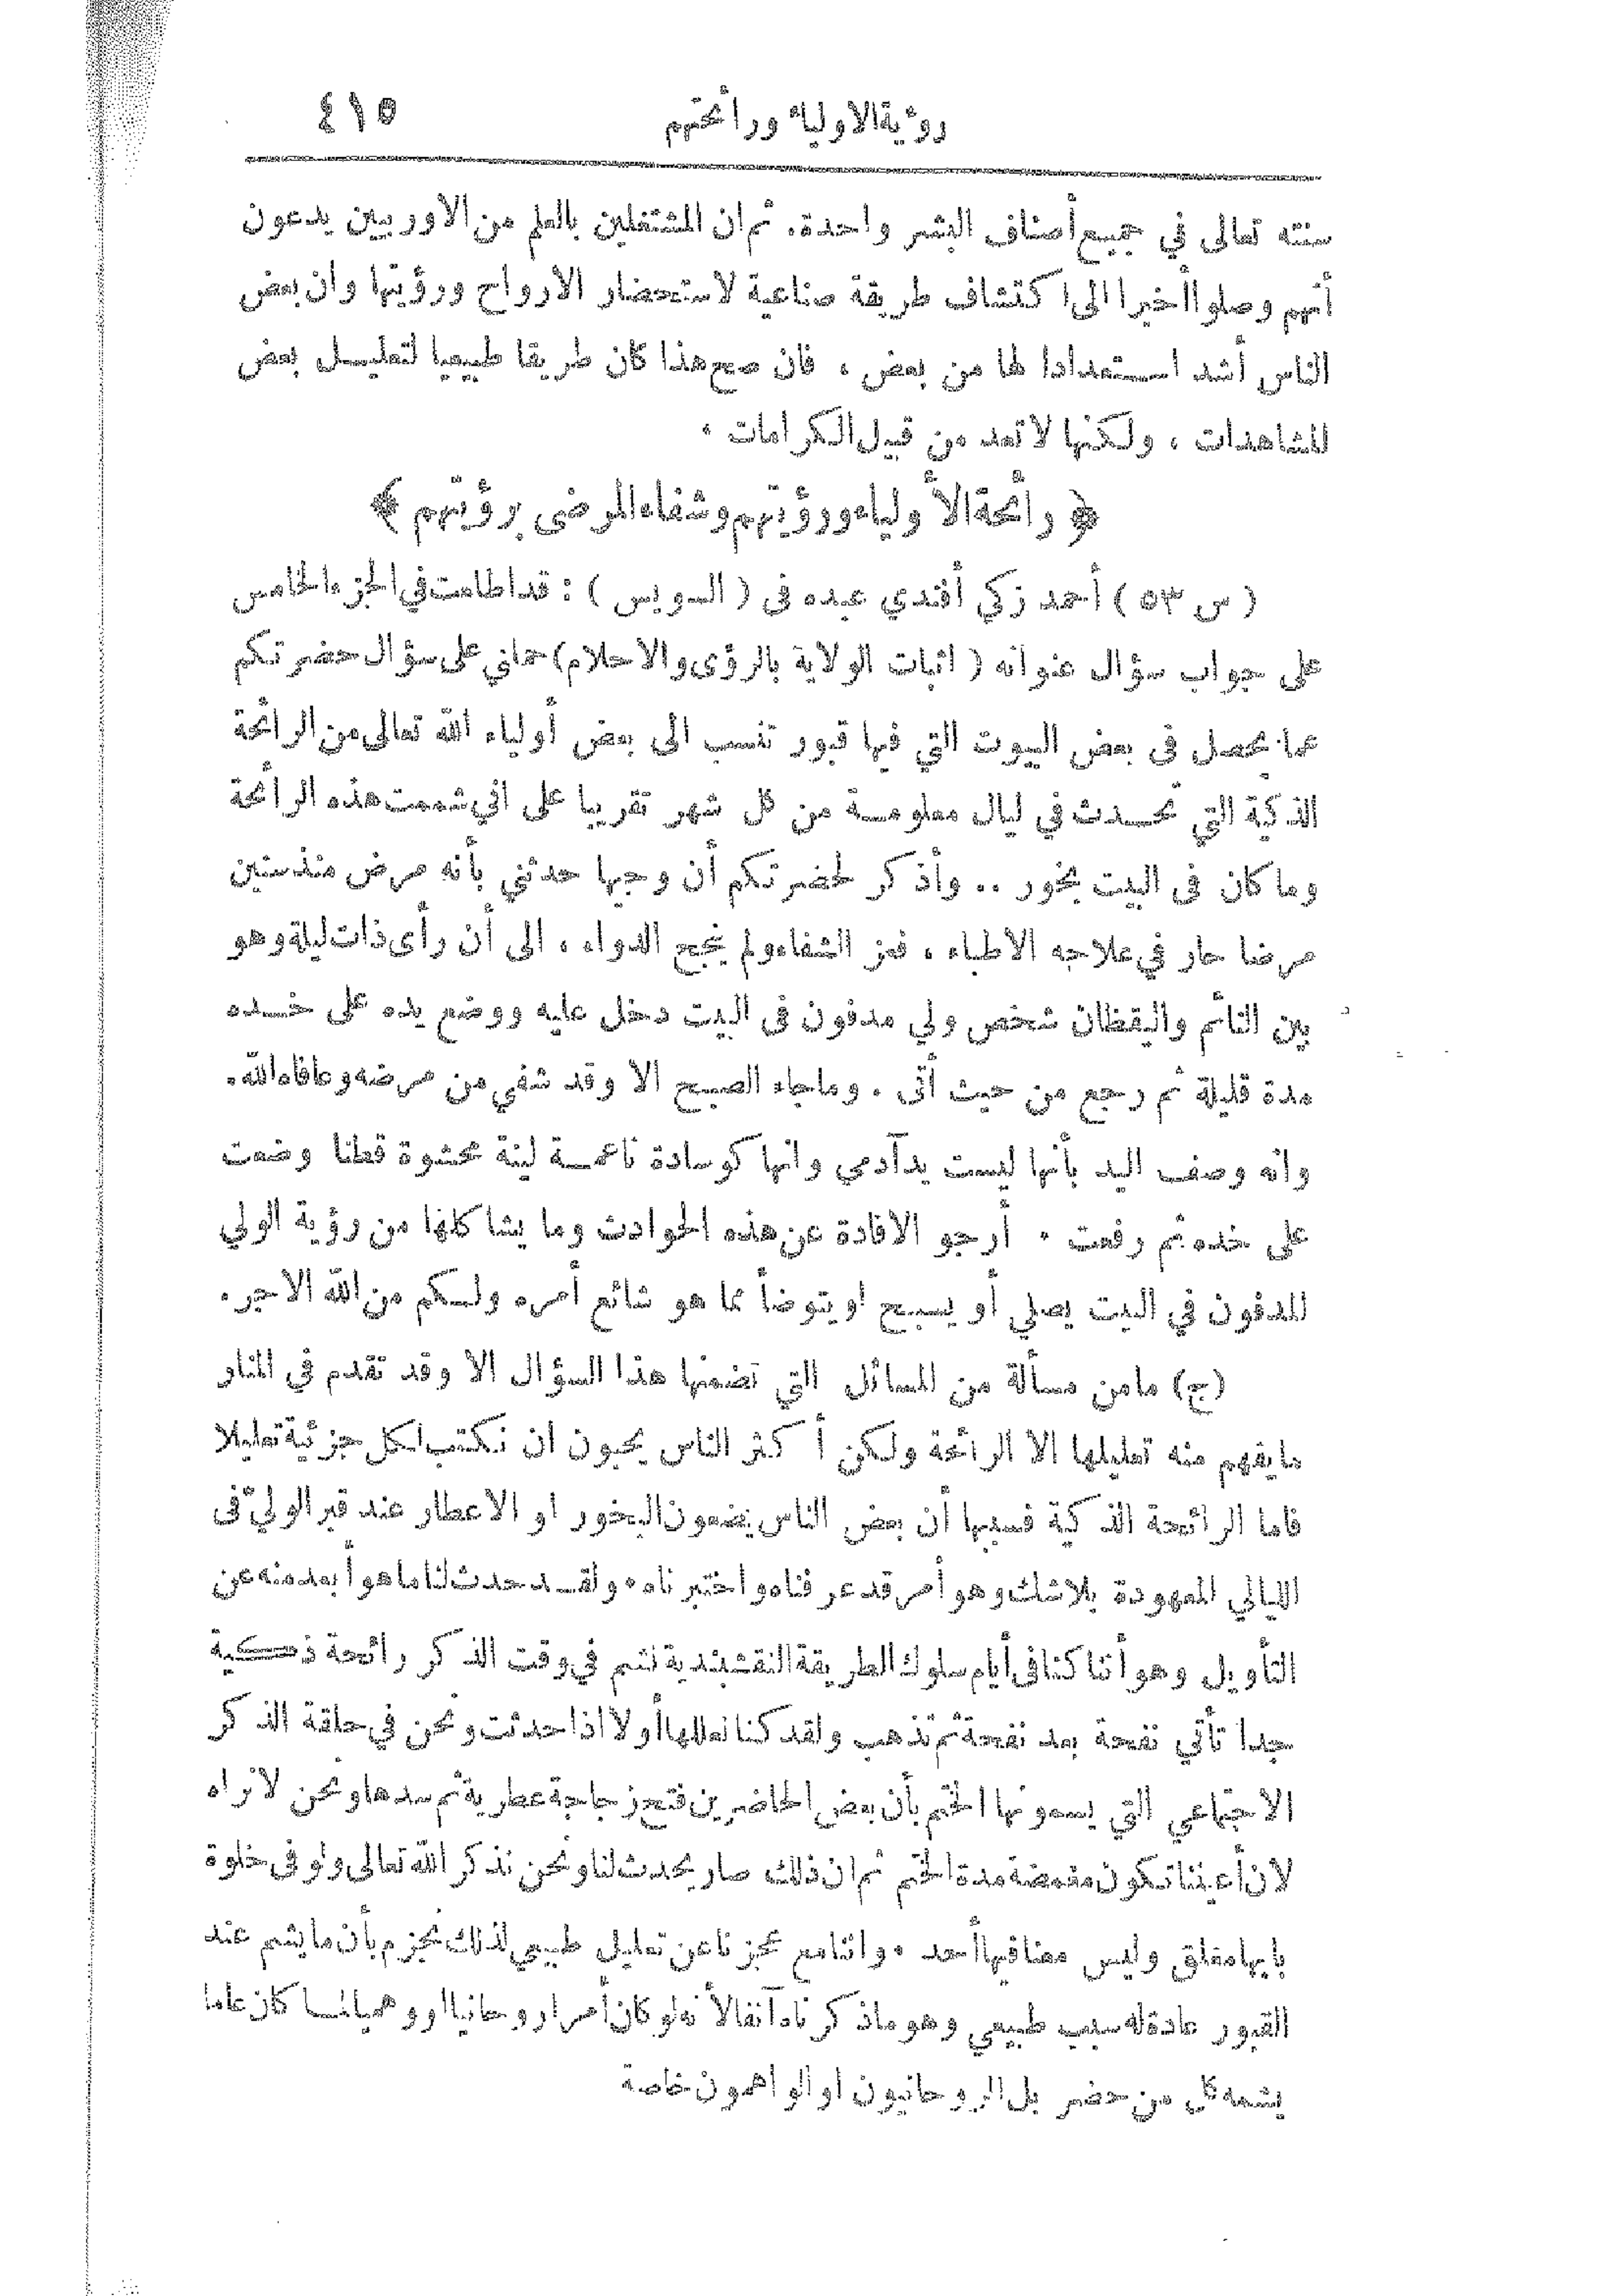 رؤية الاولياء ورائحتهم ٤١٥
سنته تعالى في جميع أصناف البشر واحدة. ثم ان المشتغلين بالعلم من الاوربيين يدعون
أنهم وصلوا أخيرا الى اكتشاف طريقة صناعية لاستحضار الارواح ورؤيتها وان بعض
الناس أشد استعدادا لها من بعض ، فان صح هذا كان طريقا طبيعيا لتعليل بعض
المشاهدات ، ولكنها لا تعد من قبيل الكرامات .
﴿ رائحة الأولياء ورؤيتهم وشفاء المرضى برؤيتهم ﴾
( س ٥٣ ) أحمد زكي أفندي عبده فى ( السويس ) : قد اطلعت في الجزء الخامس
على جواب سؤال عنوانه ( اثبات الولاية بالرؤى والاحلام ) حملني على سؤال حضرتكم
عما يحصل فى بعض البيوت التي فيها قبور تنسب الى بعض أولياء الله تعالى من الرائحة
الذكية التي تحدث في ليال معلومة من كل شهر تقريبا على اني شممت هذه الرائحة
وما كان فى البيت بخور .. وأذكر لحضرتكم أن وجيها حدثني بأنه مرض منذ سنين
مرضا حار في علاجه الاطباء ، فعز الشفاء ولم ينجح الدواء ، الى أن رأى ذات ليلة وهو
بين النائم واليقظان شخص ولي مدفون فى البيت دخل عليه ووضع يده على خده
مدة قليلة ثم رجع من حيث أتى . وما جاء الصبح الا وقد شفي من مرضه وعافاه الله.
وانه وصف اليد بأنها ليست يد آدمي وانها كوسادة ناعمة لينة محشوة قطنا وضعت
على خده ثم رفعت . أرجو الافادة عن هذه الحوادث وما يشاكلها من رؤية الولي
المدفون في البيت يصلي أو يسبح او يتوضأ مما هو شائع أمره ولكم من الله الاجر.
(ج) ما من مسألة من المسائل التي تضمنها هذا السؤال الا وقد تقدم في المنار
ما يفهم منه تعليلها الا الرائحة ولكن أكثر الناس يحبون ان نكتب لكل جزئية تعليلا
فاما الرائحة الذكية فسببها أن بعض الناس يضعون البخور او الاعطار عند قبر الوليّ فى
الليالي المعهودة بلا شك وهو أمر قد عرفناه واختبرناه. ولقد حدث لنا ما هو أبعد منه عن
التأويل وهو أننا كنا فى أيام سلوك الطريقة النقشبندية نشم في وقت الذكر رائحة ذكية
جدا تأتي نفحة بعد نفحة ثم تذهب ولقد كنا نعللها أولا اذا حدثت ونحن في حلقة الذكر
الاجتماعي التي يسمونها الختم بأن بعض الحاضرين فتح زجاجة عطرية ثم سدها ونحن لا نراه
لان أعيننا تكون مغمضة مدة الختم ثم ان ذلك صار يحدث لنا ونحن نذكر الله تعالى ولو فى خلوة
بابها مغلق وليس معنا فيها أحد . واننا مع عجزنا عن تعليل طبيعي لذلك نجزم بأن ما يشم عند
القبور عادة له سبب طبيعي وهو ما ذكرناه آنفا لأنه لو كان أمرا روحانيا او وهميا لما كان عاما
يشمه كل من حضر بل الروحانيون او الواهمون خاصة